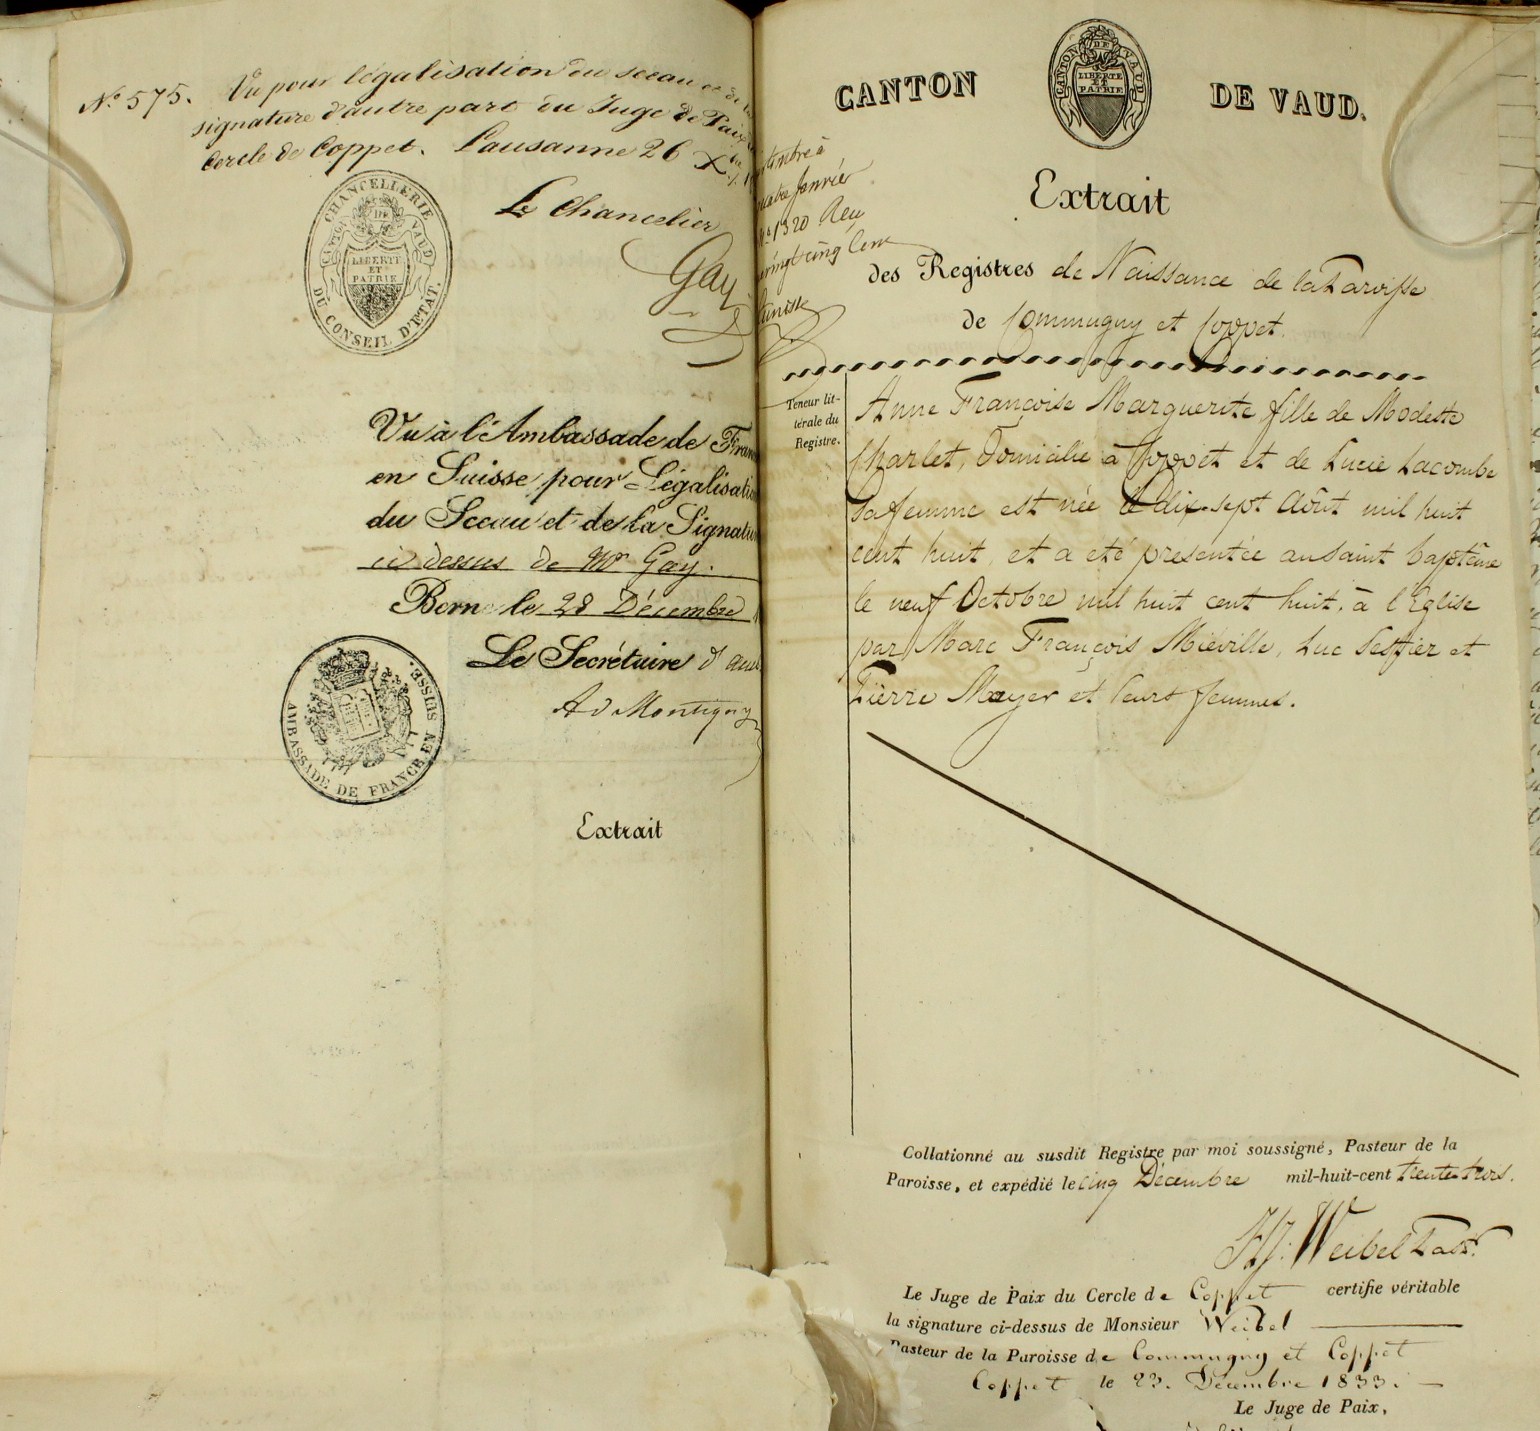 No 575. Vu pour légalisation du sceau et de la
signature d'autre part du Juge de Paix
Cercle de Coppet. Lausanne 26 Xbre
Le Chancelier
Gay
CHANCELLERIE
DU CONSEIL D'ETAT.
CANTON DE VAUD
LIBERTÉ
ET
PATRIE
Vu à l'Ambassade de Fran
en Suisse pour Légalisati
du Sceau et de la Signatu
ci dessus de Mr Gay.
Berne le 28 Décembre
Le Secrétaire d'am
Ad Montigny
AMBASSADE DE FRANCE EN SUISSE.
Extrait
CANTON DE VAUD.
CANTON DE VAUD
LIBERTÉ
ET
PATRIE
Extrait
timbré à
quatre Janvier
No 1320 Reçu
vingt cinq Cent
des Registres de Naissance de la Paroisse
de Commugny et Coppet.
Teneur lit-
térale du
Registre.
Anne Françoise Marguerite fille de Modeste
Charlet, Domicilié à Coppet et de Lucie Lacombe
sa femme est née le dix-sept Août mil huit
cent huit et a été présentée au saint baptême
le neuf Octobre mil huit cent huit, à l'Eglise
par Marc François Miéville, Luc Sessier et
Pierre Mayer et leurs femmes.
Collationné au susdit Registre par moi soussigné, Pasteur de la
Paroisse, et expédié le cinq Décembre mil-huit-cent trente trois.
Weibel Past.
Le Juge de Paix du Cercle de Coppet certifie véritable
la signature ci-dessus de Monsieur Weibel
Pasteur de la Paroisse de Commugny et Coppet
Coppet le 23. Décembre 1833.
Le Juge de Paix,